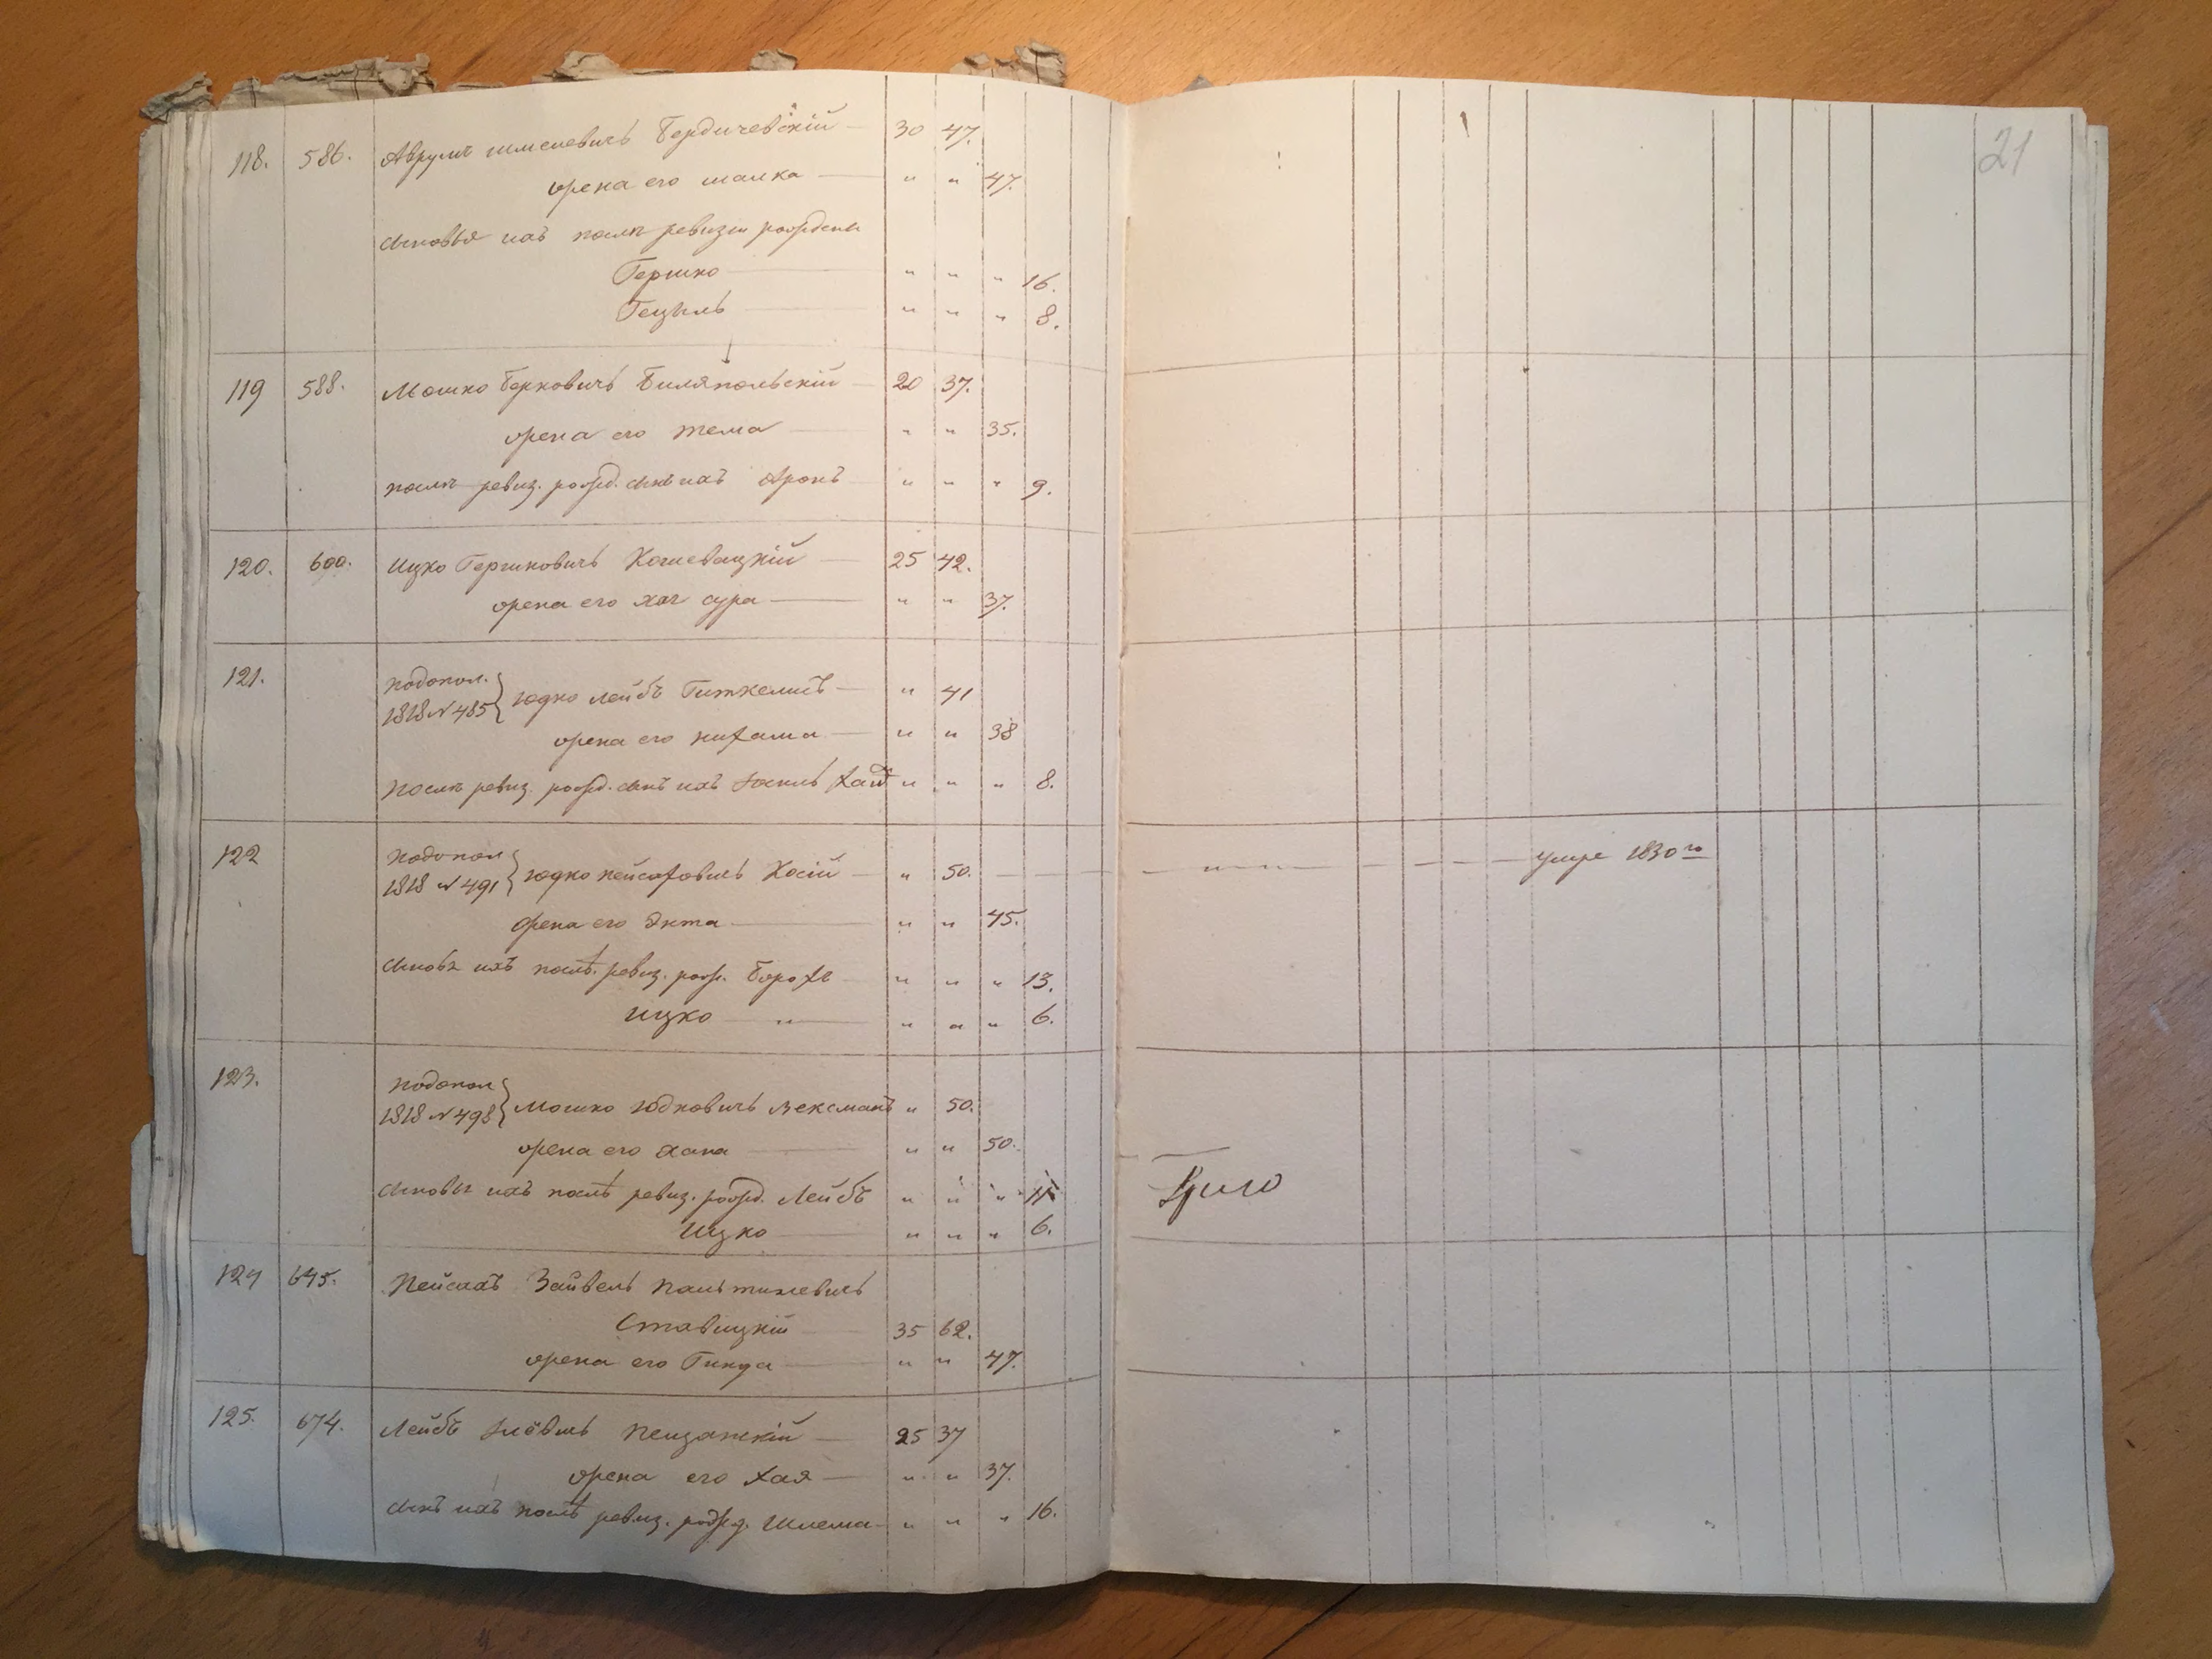 21
118. 586. Аврумъ Шмулевичъ Бердичевскій 30 47.
жена его Малка " " 47.
сыновья ихъ послѣ ревизіи рожденн
Гершко " " " 16.
Гецыль " " " 8.
119 588. Мошко Берковичъ Биляпольскій 20 37.
жена его Тема " " 35.
послѣ ревиз. рожд. сынъ ихъ Аронъ " " " 9.
120. 600. Ицко Гершковичъ Кошевацкій 25 42.
жена его Хая Сура " " 37.
121. подопол.
1818 N 485 Юдко Лейбъ " 41
жена его Нихама " " 38
послѣ ревиз. рожд. сынъ ихъ " " " 8.
122 подопол
1818 N 491 Юдко Пейсаховичъ " 50. умре 1830 го
жена его Экта " " 45.
сыновья ихъ послѣ ревиз. рожд. Борохъ " " " 13.
Ицко " " " " 6.
123. подопол
1818 N 498 Мошко Юдковичъ Зексманъ " 50.
жена его Хана " " 50.
сыновья ихъ послѣ ревиз. рожд. Лейбъ " " " 11
Ицко " " " 6.
124 645. Пейсахъ Зайвель
Ставицкій 35 62.
жена его Гинда " " 47.
125. 674. Лейбъ 25 37
жена его Хая " " 37.
сынъ ихъ послѣ ревиз. рожд. Шлема " " " 16.